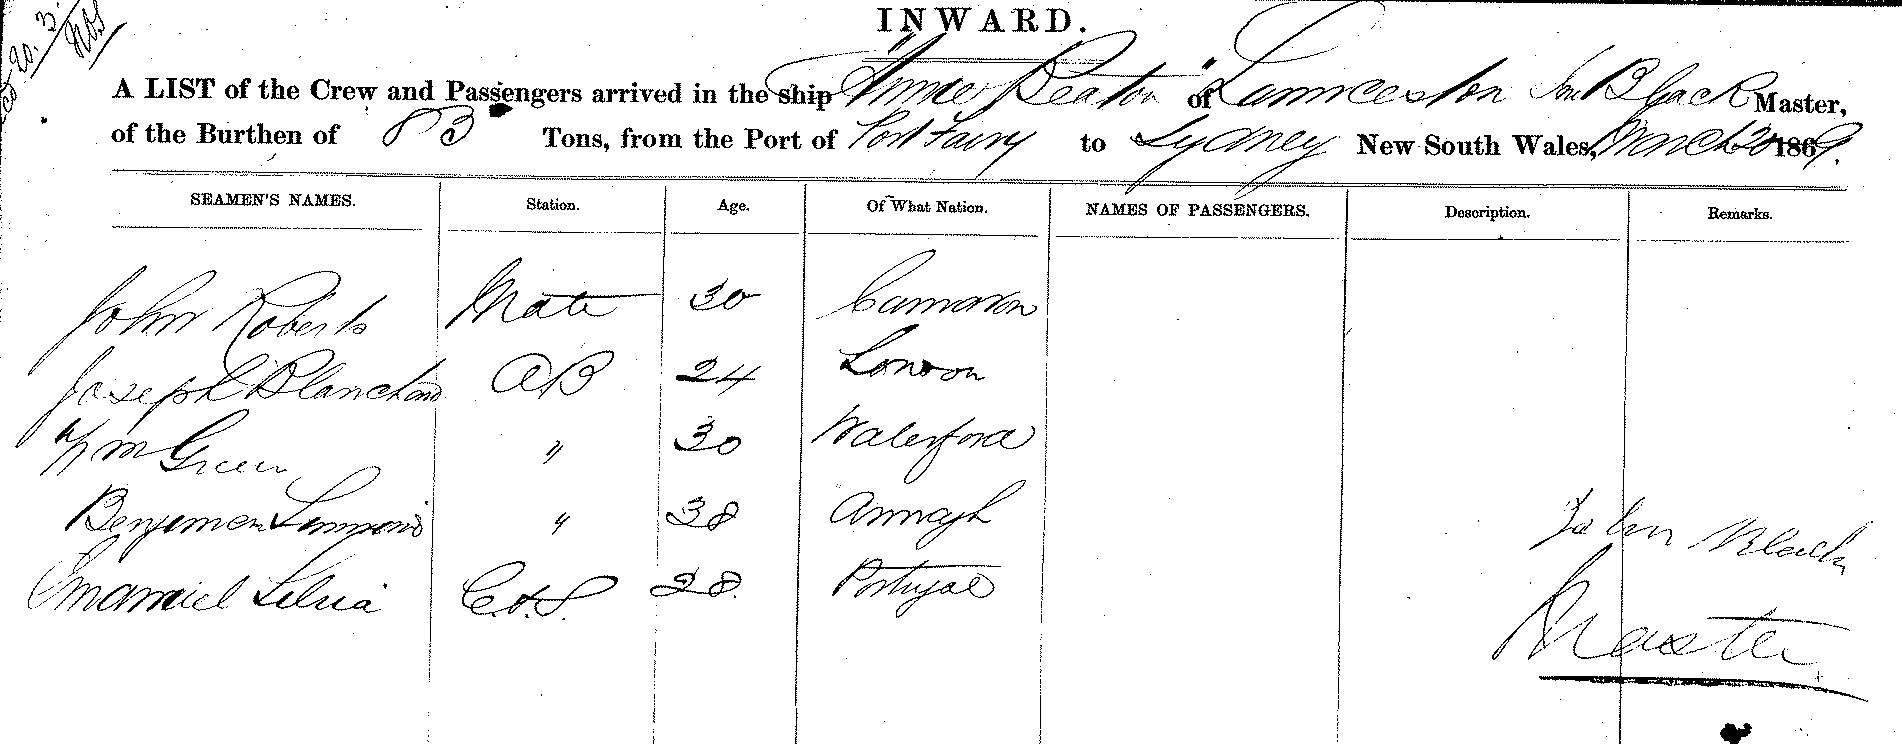 INWARD.
A LIST of the Crew and Passengers arrived in the ship "Annie Beaton" of Launceston Jno Black Master,
of the Burthen of 83 Tons, from the Port of Port Fairy to Sydney New South Wales, March 20 1869.
SEAMEN'S NAMES. Station. Age. Of What Nation. NAMES OF PASSENGERS. Description. Remarks.
John Roberts Mate 30 Carnarvon
Joseph Blanchard AB 24 London
Wm Green " 30 Waterford
Benjemen " 38 Armagh
John Black
Emanuel Silvia C.&S. 28. Portugal
Master